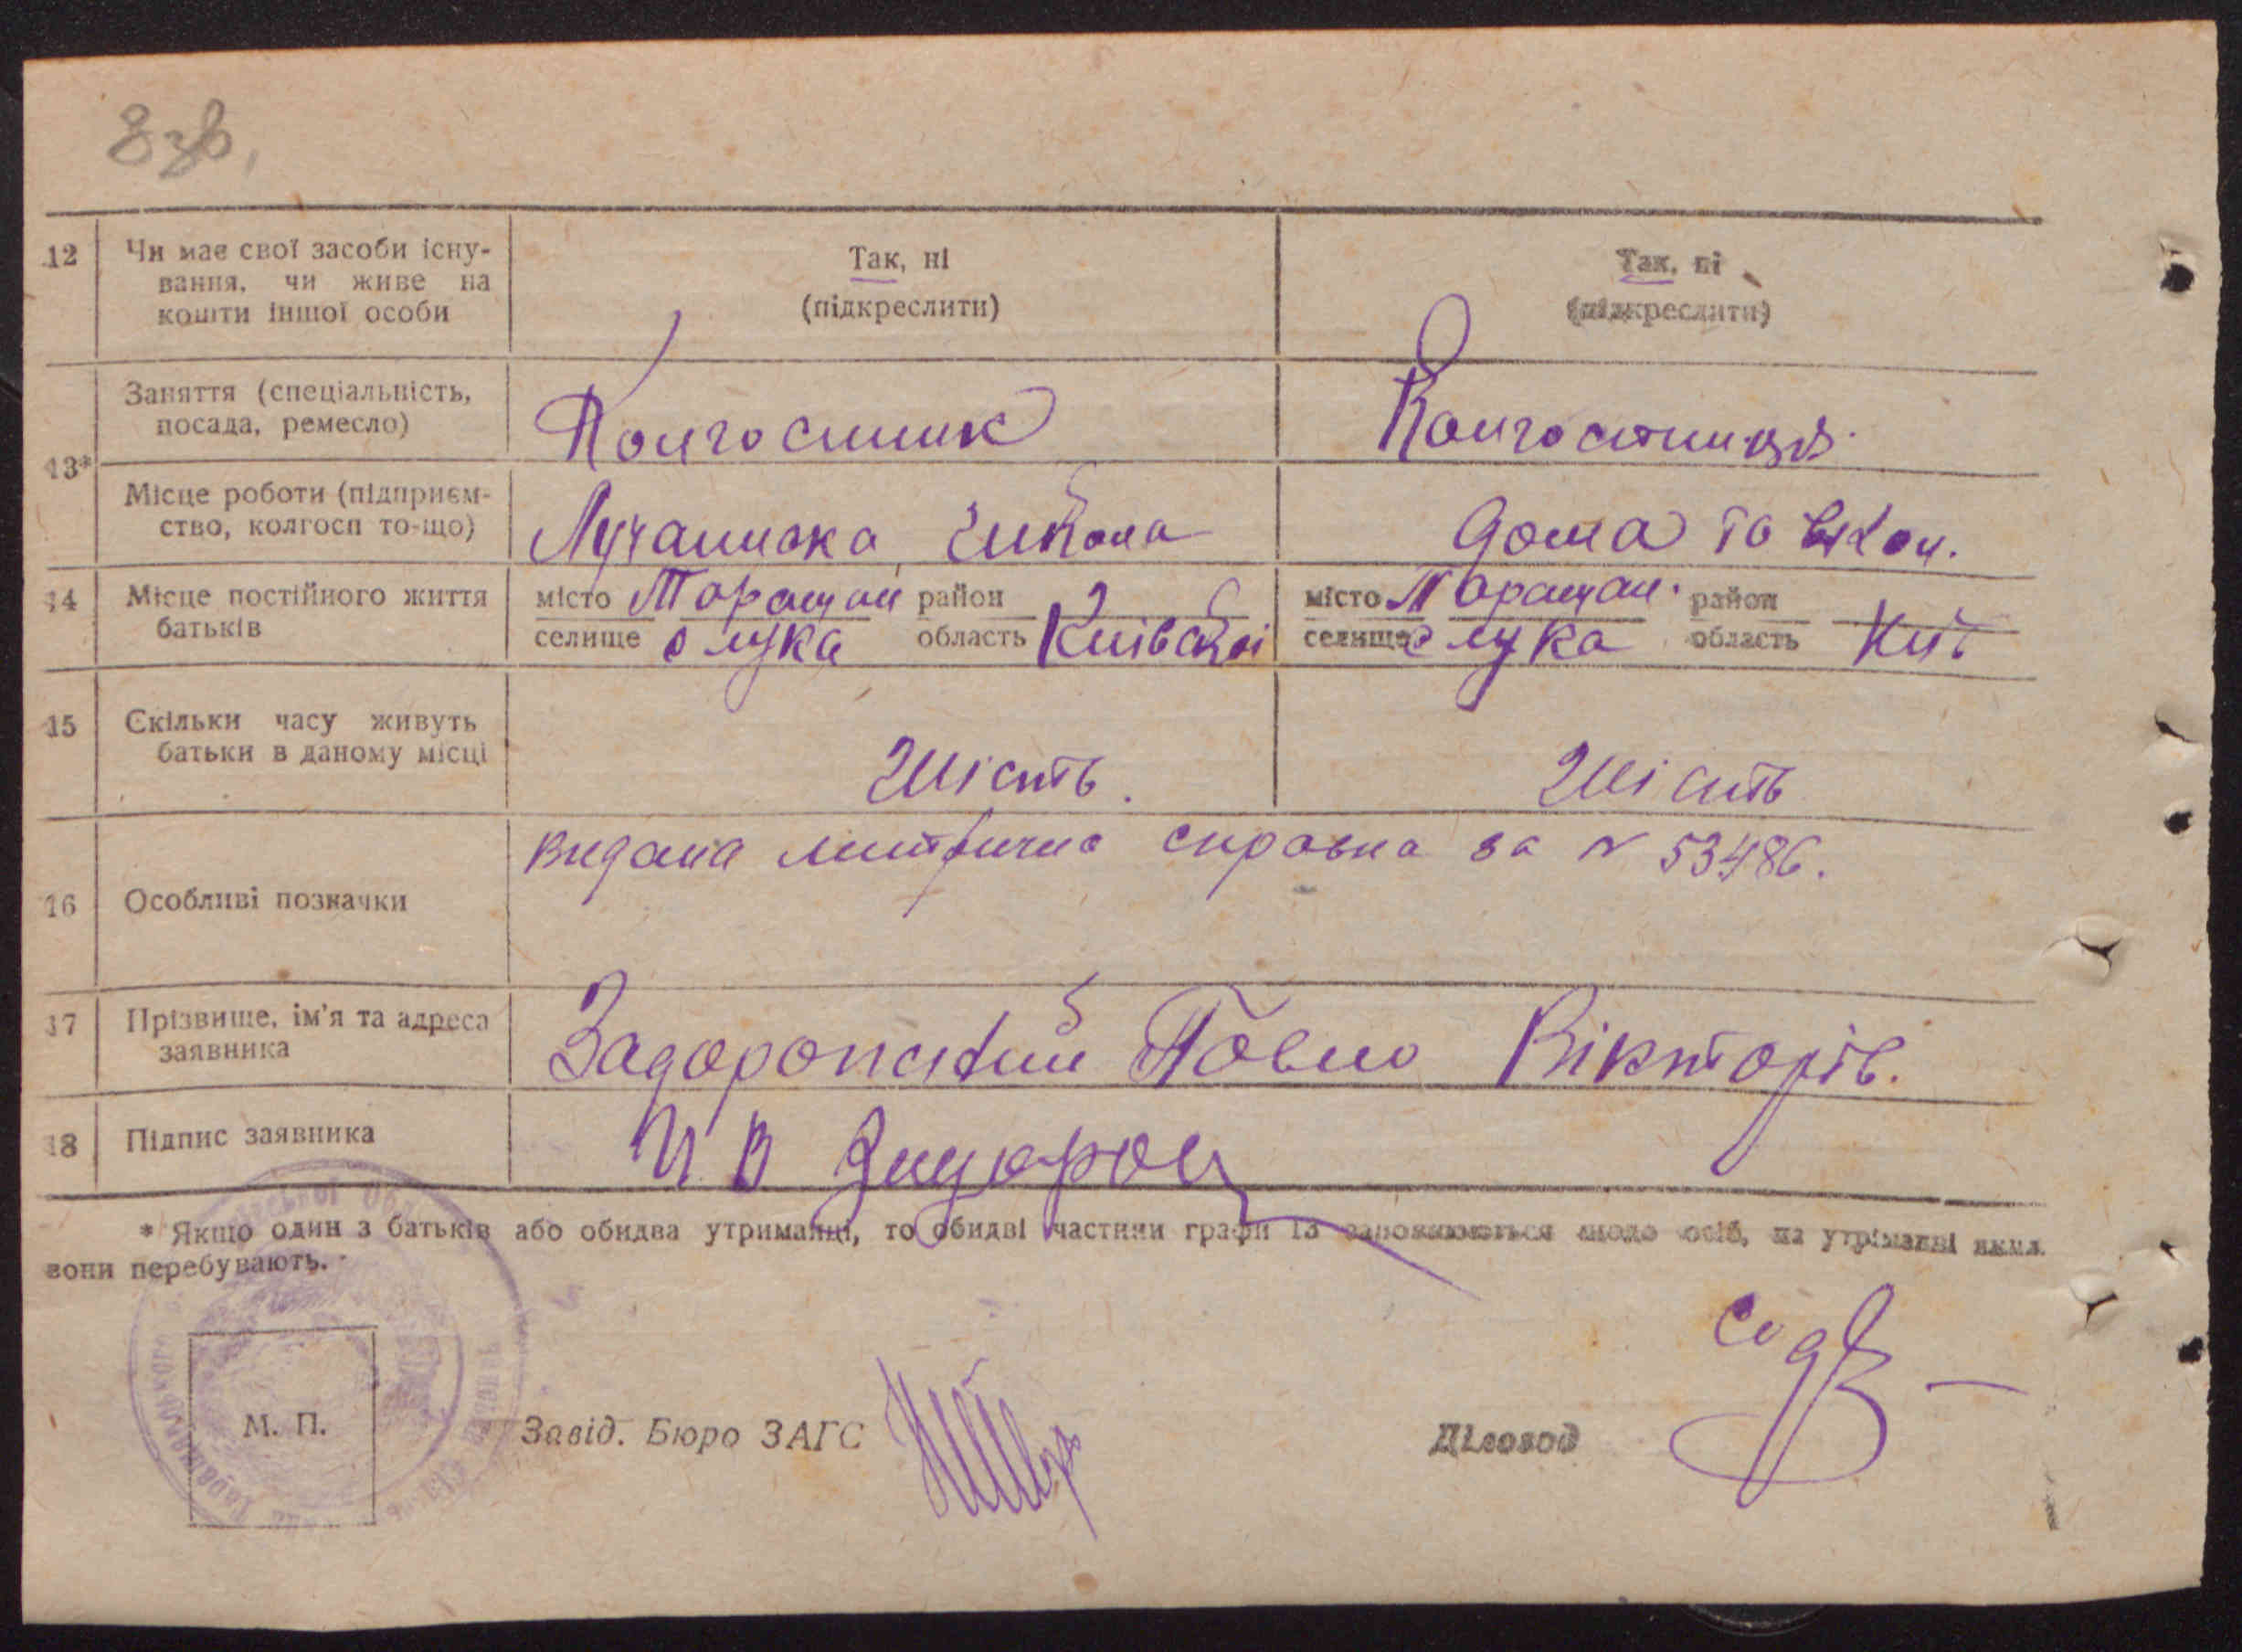 8 зв,
12 Чи має свої засоби існу-
вання, чи живе на
кошти іншої особи
Так, ні
(підкреслити)
Так, ні
(підкреслити)
13*
Заняття (спеціальність,
посада, ремесло)
Колгоспник
Колгоспниця
Місце роботи (підприєм-
ство, колгосп то-що)
Лучанська школа
дома та в кол.
14 Місце постійного життя
батьків
місто Таращан район
селище с лука область Київської
місто Таращан. район
селище с лука область Киів
15 Скільки часу живуть
батьки в даному місці
Шість.
Шість
16 Особливі позначки
видана митрична справка за № 53486.
17 Прізвище, ім'я та адреса
заявника
Задоропський Павло Вікторів.
18 Підпис заявника
П В
* Якщо один з батьків або обидва утриманці, то обидві частини графи 13 заповнюються щодо осіб, на утриманні яких
вони перебувають.
М. П.
Завід. Бюро ЗАГС
Діловод